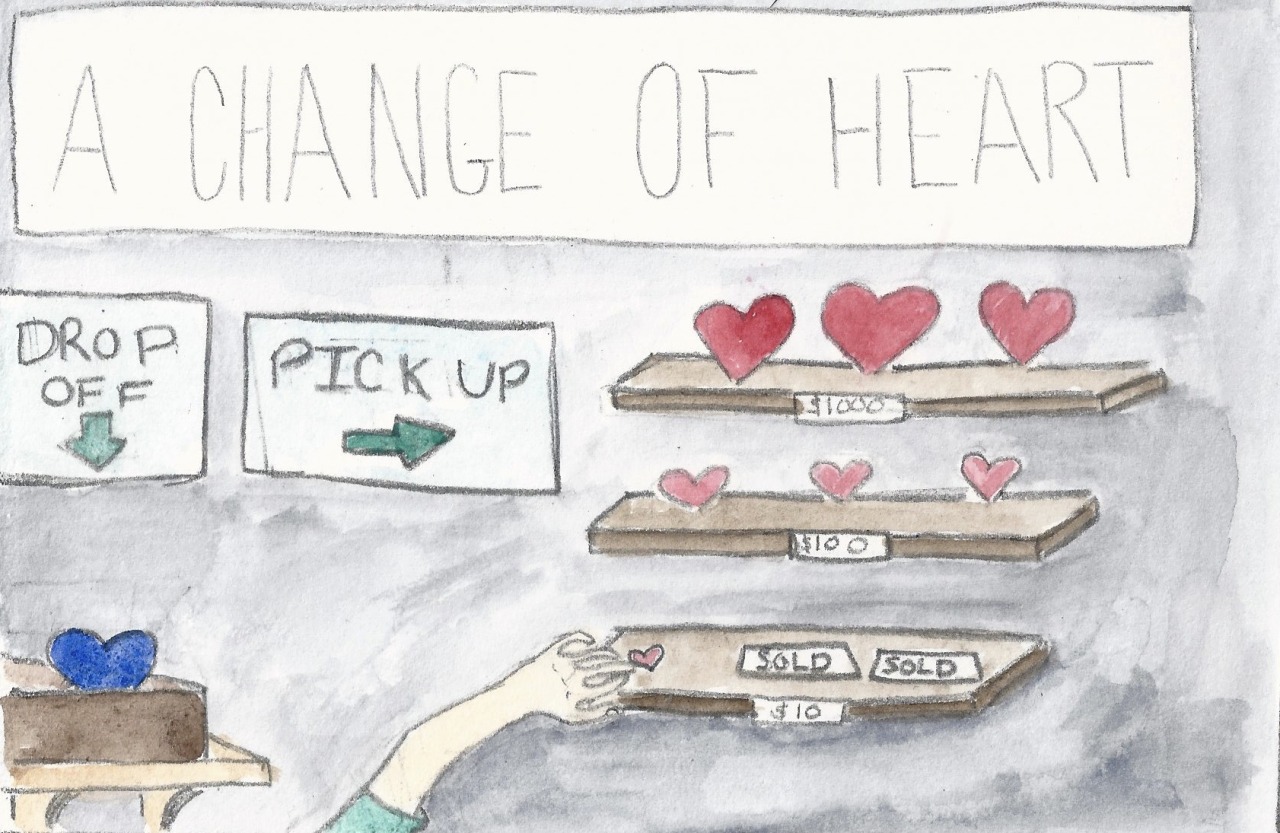 A CHANGE OF HEART
DROP
OFF
PICK UP
$1000
$100
SOLD SOLD
$10